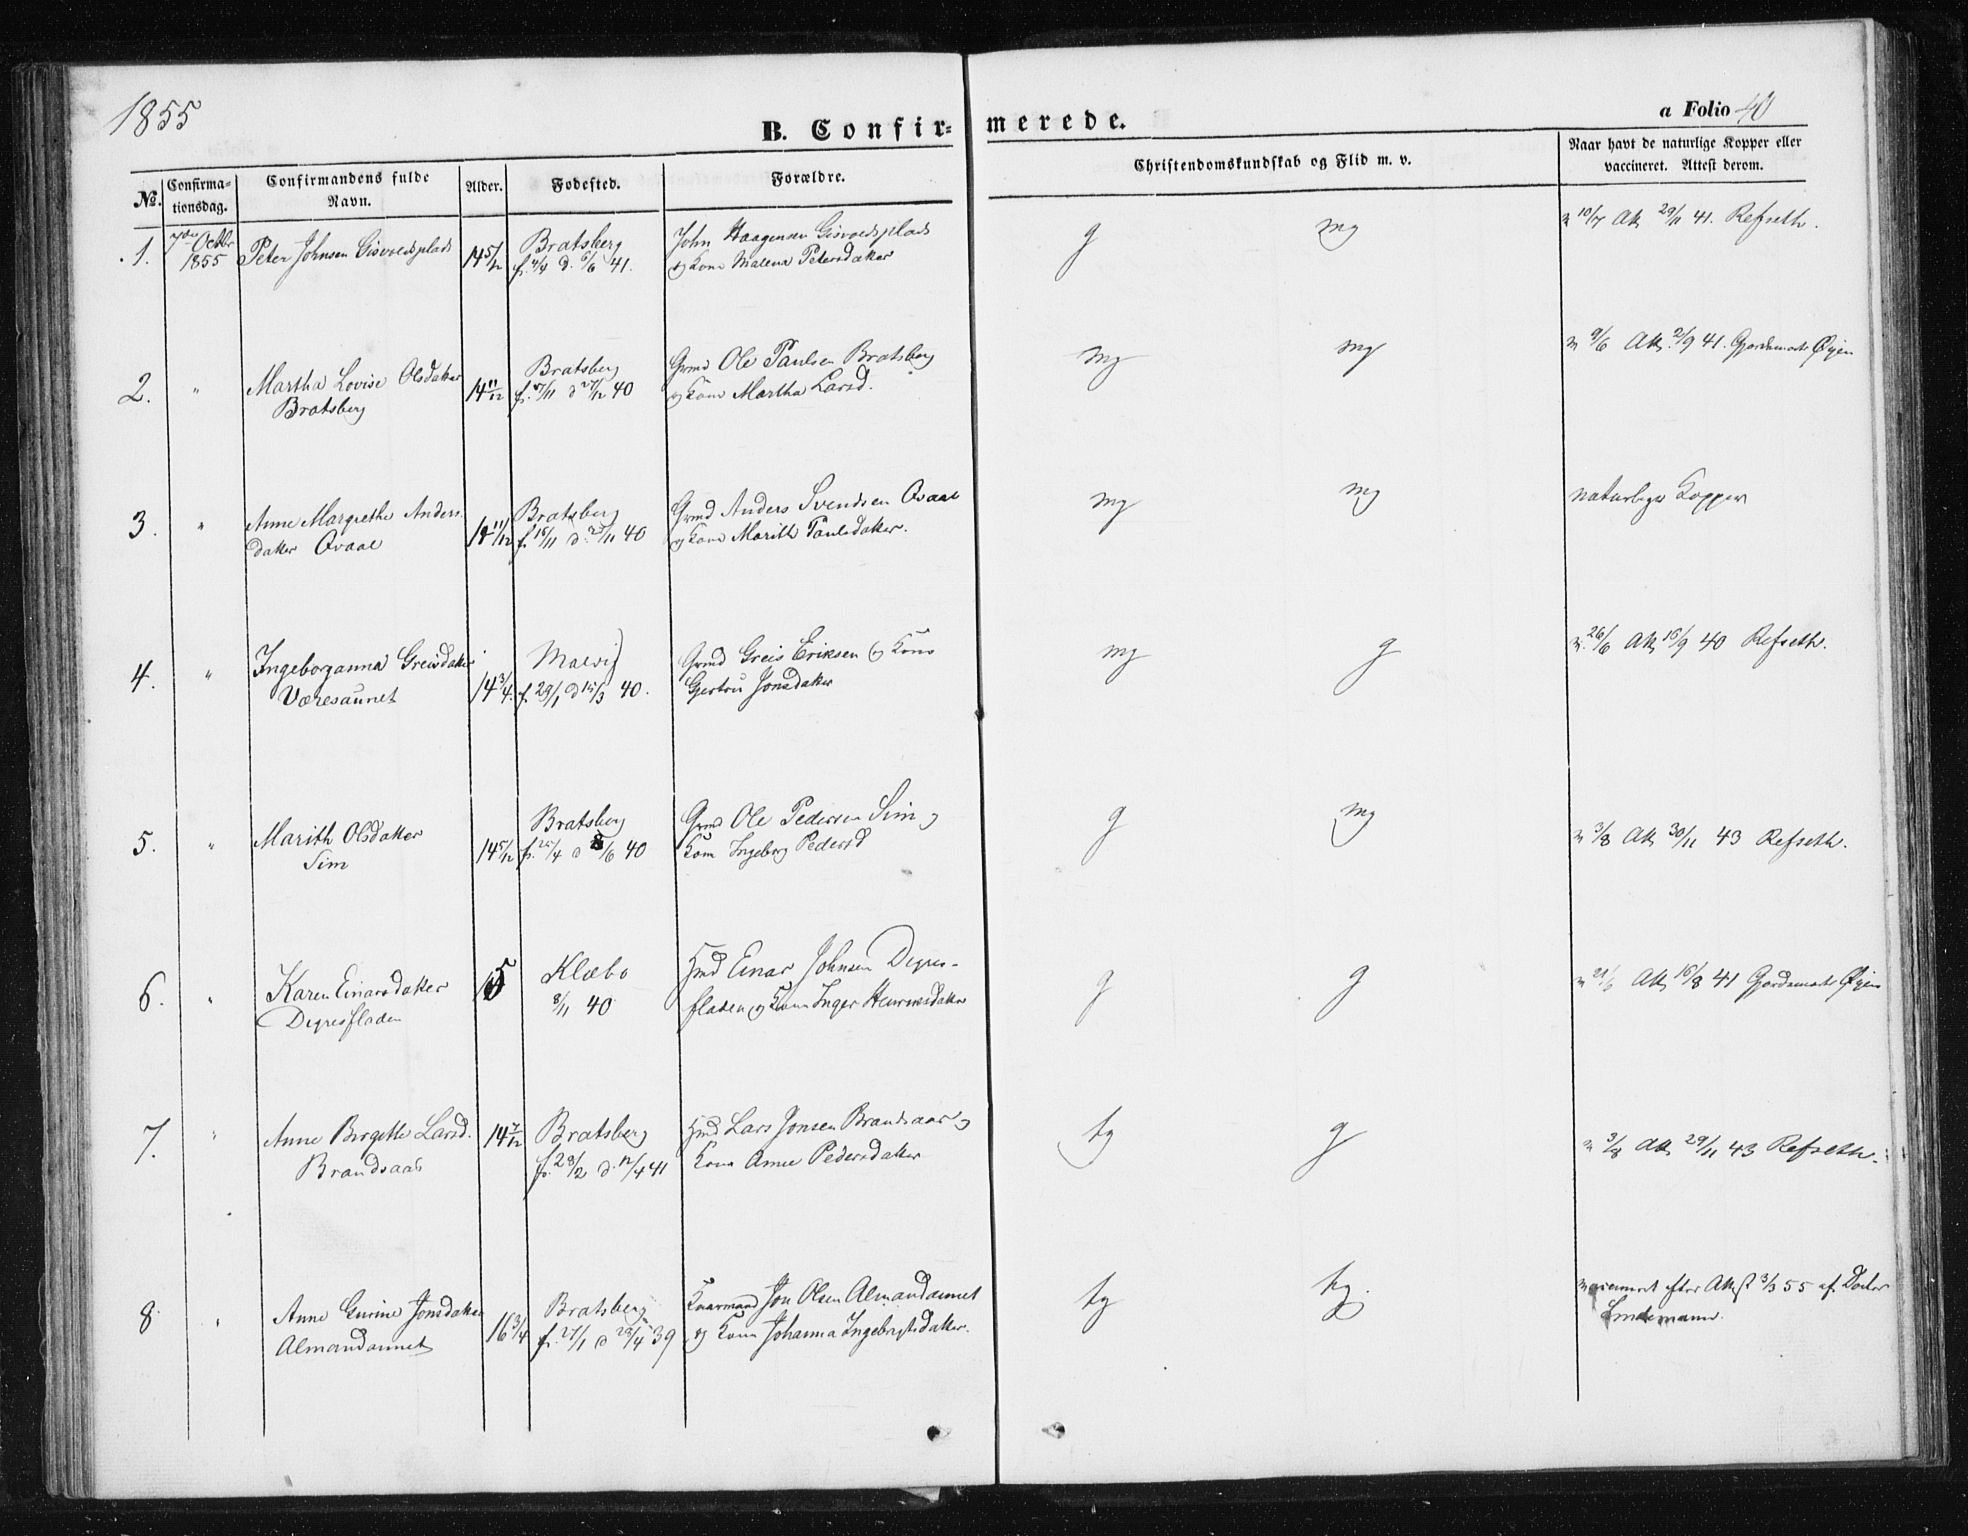 1855
B. Confirmerede.
a Folio 40
№.
Confirmationsdag.
Confirmandens fulde Navn.
Alder.
Fødested.
Forældre.
Christendomskundskab og Flid m. v.
Naar havt de naturlige Kopper eller vaccineret. Attest derom.
1. 7de Octbr 1855
Peter Johnsen Gisvoldsplads
14 5/12
Bratsberg
f. 4/4 d. 6/6 41.
John Haagensen Gisvoldsplads
og Kone Malena Petersdatter
g
mg
v 10/7 Att 29/11 41. Refseth.
2. "
Martha Lovise Olsdatter
Bratsberg
14 11/12
Bratsberg
f. 17/11 d 27/12 40
Grmd Ole Paulsen Bratsberg
og Kone Martha Larsd.
mg
mg
v 9/6 Att. 2/9 41. Gjordemoder Øyen
3. "
Anne Margrethe Anders
datter Qvaal
14 11/12
Bratsberg
f. 16/11 d. 25/11 40
Grmd Anders Svendsen Qvaal
og Kone Marith Paulsdatter.
mg
mg
naturlige Kopper
4. "
Ingeboranna Greisdatter
Væresaunet
14 3/4.
Malvig
f. 29/1 d 15/3 40.
Grmd Greis Eriksen og Kone
Gertru Jonsdatter
mg
g
v. 26/6 Att 16/9 40 Refseth.
5. "
Marith Olsdatter
Sim
14 5/12
Bratsberg
f. 25/4 d 8/6 40
Grmd Ole Pedersen Sim og
Kone Ingeborg Pedersd
g
mg
v 3/8 Att 30/11 43 Refseth.
6. "
Karen Einarsdatter
Digresfladen
15
Klæbo
8/11 40
Hmd Einar Johnsen Digres-
fladen og Kone Inger Henriksdatter
g
g
v 21/6 Att 16/8 41 Gjordemoder Øyen
7. "
Anne Birgette Larsd.
Brandsaas
14 7/12
Bratsberg
f. 28/2 d. 12/4 41
Hmd Lars Jonsen Brandsaas og
Kone Anne Pedersdatter
tg
g
v 3/8 Att 29/11 43 Refseth.
8. "
Anne Gurine Jonsdatter
Almandaunet
16 3/4
Bratsberg
f. 27/1 d 28/4 39
Kaarmand Jon Olsen Almandaunet
og Kone Johanna Ingebrigtsdatter.
tg
tg.
vaccineret efter Attest 3/3 55 af Doctor
Lindemann.